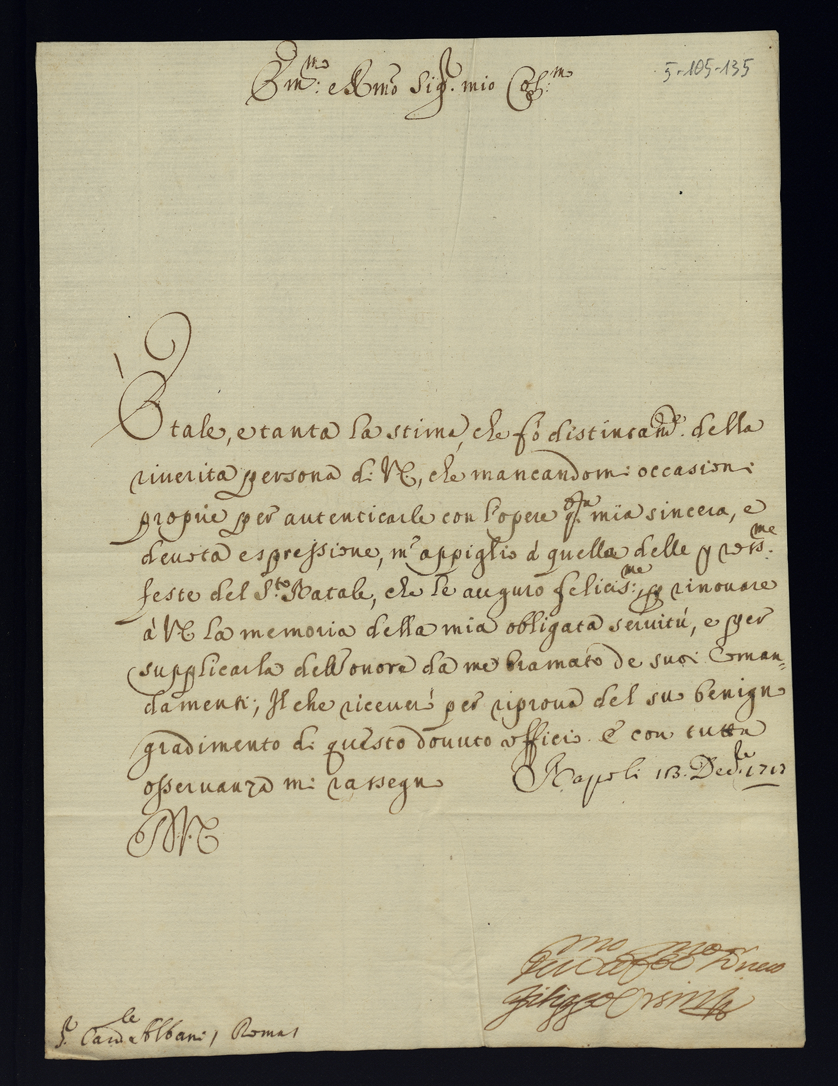 5-105-135
Em.mo e Rmo Sig.r mio Col.mo
È tale, e tanta la stima, che fò distintam.te della
riuerita persona di VE, che mancandomi occasioni
proprie per autenticarle con l'opere mia sincera, e
deuota espressione, m'appiglio à quella delle pross.me
feste del S.to Natale, che le auguro felicis.me, p rinouare
à VE la memoria della mia obligata seruitù, e per
supplicarla dell'onore da me bramato de suoi Coman-
damenti; Il che riceuerò per riproua del suo benigno
gradimento di questo douuto officio. E con tutta
osseruanza mi rassegno Napoli 13. Dec.re 1717
VE
Filippo Orsini
S.r Card.le Albani / Roma /